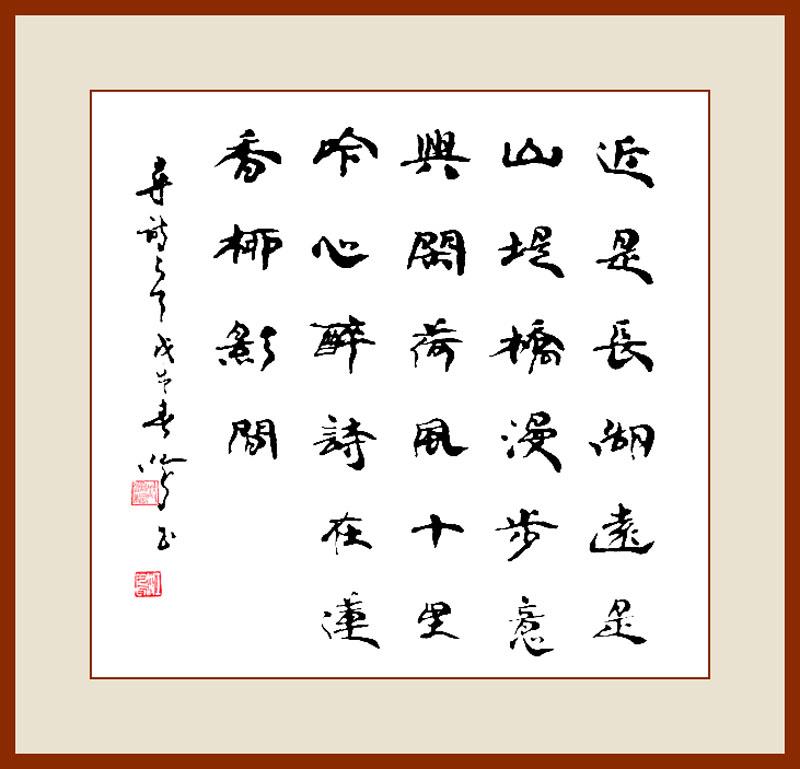 近是長湖遠是
山堤橋漫步意
興閑荷風十里
吟心醉詩在蓮
香柳影間